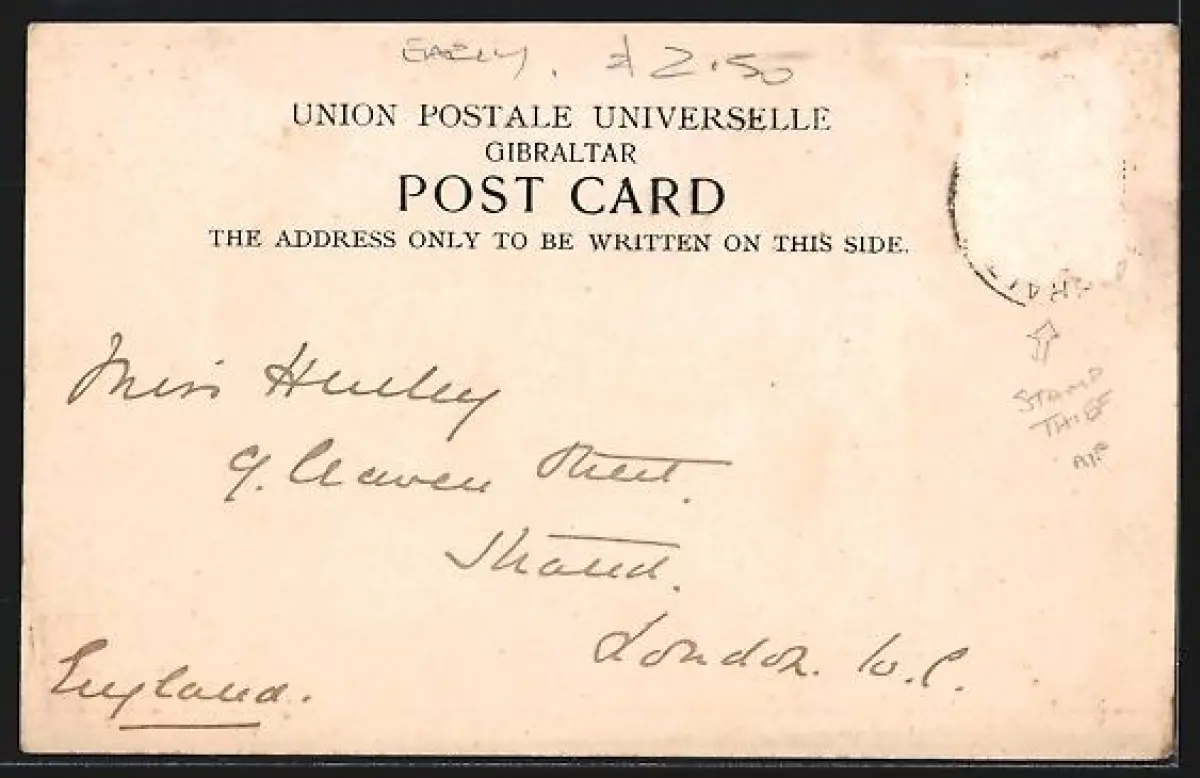 EARLY. £2.50
UNION POSTALE UNIVERSELLE
GIBRALTAR
POST CARD
THE ADDRESS ONLY TO BE WRITTEN ON THIS SIDE.
Miss Hurley
9. Craven Street.
Strand.
London. W.C.
England.
STAMP
THIEF